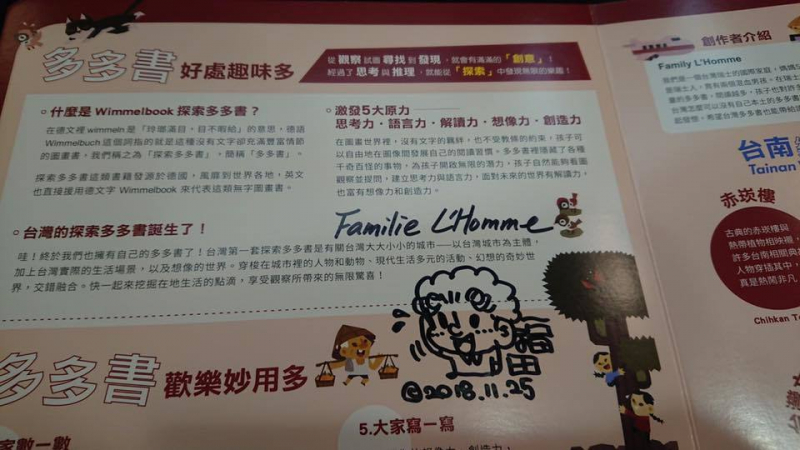 多多書 好處趣味多
從 觀察 試圖 尋找 到 發現，就會有滿滿的「創意」！
經過了 思考 與 推理，就能從「探索」中發現無窮的樂趣！
什麼是 Wimmelbook 探索多多書？
在德文裡 wimmeln是「玲瑯滿目，目不暇給」的意思，德語
Wimmelbuch 這個詞指的就是這種沒有文字卻充滿豐富情節
的圖畫書，我們稱之為「探索多多書」，簡稱「多多書」。
探索多多書這類書籍發源於德國，風靡到世界各地，英文
也直接援用德文字 Wimmelbook 來代表這類無字圖畫書。
激發5大原力
思考力・語言力・解讀力・想像力・創造力
在圖畫世界裡，沒有文字的羈絆，也不受教條的約束，孩子可
以自由地在圖像間發展自己的閱讀習慣。多多書裡隱藏了各種
千奇百怪的事物，為孩子開啟無限的潛力，孩子自然能夠看圖
觀察並提問，建立思考與語言力，面對未來的世界有解讀力，
也富有想像力和創造力。
台灣的探索多多書誕生了！
哇！終於我們也擁有自己的多多書了！台灣第一套探索多多書是有關台灣大大小小的城市──以台灣城市為主體，
加上台灣實際的生活場景，以及想像的世界。穿梭在城市裡的人物和動物、現代生活多元的活動、幻想的奇妙世
界，交錯融合。快一起來挖掘在地生活的點滴，享受觀察所帶來的無限驚喜！
Familie L'Homme
©2018.11.25
多多書 歡樂妙用多
家數一數
5.大家寫一寫
創作者介紹
Family L'Homme
我們是一個台灣瑞士的國際家庭，媽媽
台南
Tainan
赤崁樓
古典的赤崁樓與
熱帶植物相映襯，
許多台南相關典故
人物穿插其中，
真是熱鬧非凡
Chihkan T